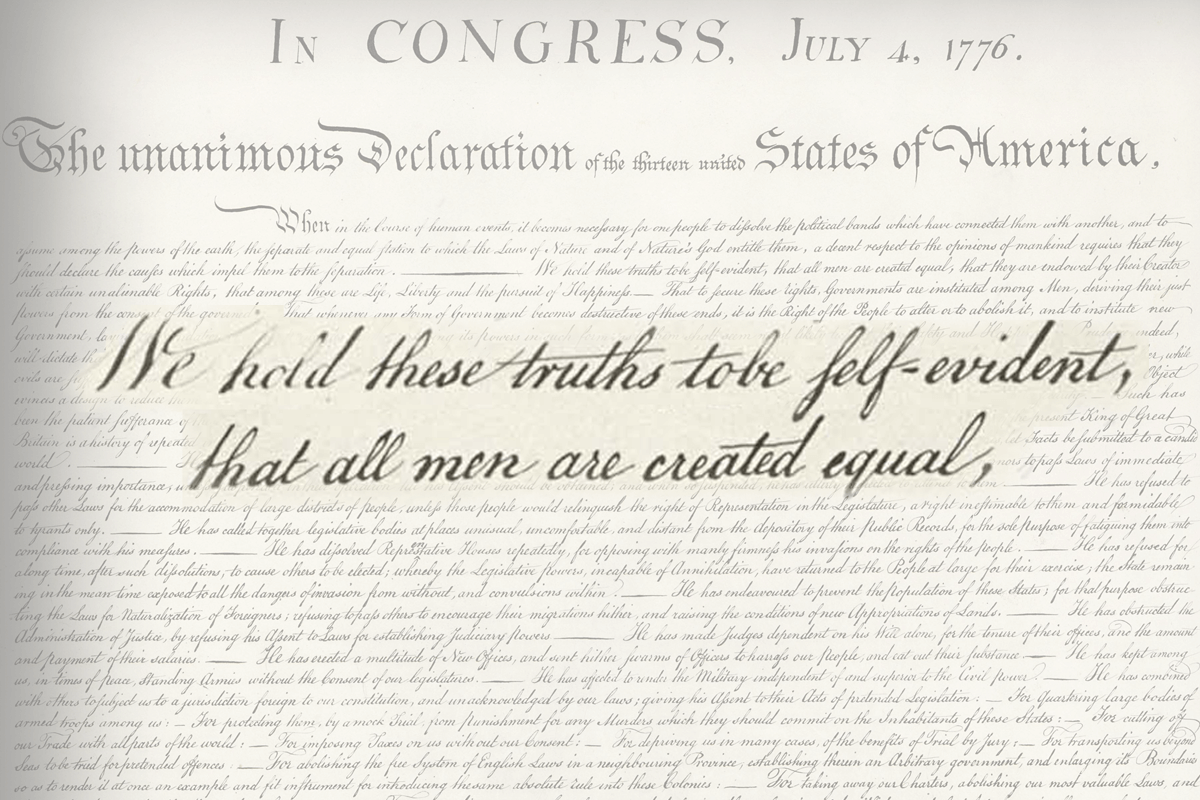 In CONGRESS, July 4, 1776.
The unanimous Declaration of the thirteen united States of America,
When in the Course of human events, it becomes necessary for one people to diſsolve the political bands which have connected them with another, and to
aſsume among the powers of the earth, the ſeparate and equal ſtation to which the Laws of Nature and of Nature's God entitle them, a decent respect to the opinions of mankind requires that they
ſhould declare the cauſes which impel them to the ſeparation. ——— We hold these truths to be ſelf-evident, that all men are created equal, that they are endowed by their Creator
with certain unalienable Rights, that among these are Life, Liberty and the pursuit of Happineſs.— That to ſecure these rights, Governments are instituted among Men, deriving their just
powers from the consent of the governed That whenever any Form of Government becomes destructive of these ends, it is the Right of the People to alter or to abolish it, and to institute new
Government, indeed,
will dictate while
evils are Object
evinces a design to reduce Such has
We hold these truths to be ſelf-evident,
that all men are created equal,
been the patient ſufferance present King of Great
Britain is a history of repeated Facts be ſubmitted to a candid
world. ——— to paſs Laws of immediate
and preſsing importance, ——— He has refused to
paſs other Laws for the accommodation of large districts of people, unleſs those people would relinquish the right of Representation in the Legislature, a right inestimable to them and formidable
to tyrants only. ——— He has called together legislative bodies at places unusual, uncomfortable, and distant from the depository of their public Records, for the sole purpose of fatiguing them into
compliance with his meaſures. ——— He has diſsolved Representative Houses repeatedly, for opposing with manly firmneſs his invasions on the rights of the people. ——— He has refused for
a long time, after such diſsolutions, to cause others to be elected; whereby the Legislative powers, incapable of Annihilation, have returned to the People at large for their exercise; the State remain
ing in the mean time exposed to all the dangers of invasion from without, and convulsions within. ——— He has endeavoured to prevent the population of these States; for that purpose obstruc
ting the Laws for Naturalization of Foreigners; refusing to paſs others to encourage their migrations hither, and raising the conditions of new Appropriations of Lands. ——— He has obstructed the
Administration of Justice, by refusing his Aſsent to Laws for establishing Judiciary powers ——— He has made Judges dependent on his Will alone, for the tenure of their offices, and the amount
and payment of their salaries. ——— He has erected a multitude of New Offices, and sent hither swarms of Officers to harraſs our people, and eat out their substance. ——— He has kept among
us, in times of peace, Standing Armies without the Consent of our legislatures. ——— He has affected to render the Military independent of and superior to the Civil power. ——— He has combined
with others to ſubject us to a jurisdiction foreign to our constitution, and unacknowledged by our laws; giving his Aſsent to their Acts of pretended Legislation: — For Quartering large bodies of
armed troops among us: — For protecting them, by a mock Trial, from punishment for any Murders which they should commit on the Inhabitants of these States: — For cutting off
our Trade with all parts of the world: — For imposing Taxes on us without our Consent: — For depriving us in many cases, of the benefits of Trial by Jury: — For transporting us beyond
Seas to be tried for pretended offences — For abolishing the free System of English Laws in a neighbouring Province, establishing therein an Arbitrary government, and enlarging its Boundaries
so as to render it at once an example and fit instrument for introducing the same absolute rule into these Colonies: — For taking away our Charters, abolishing our most valuable Laws, and